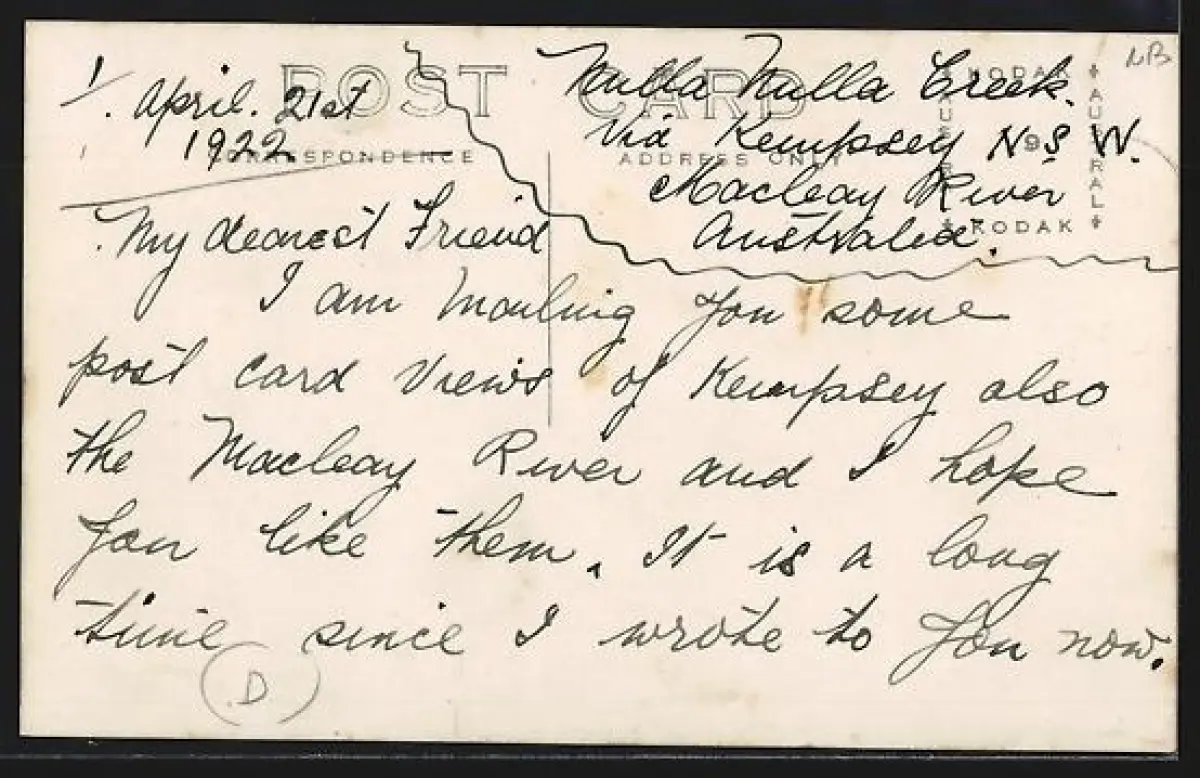 1/. April. 21st
1922
Nulla Nulla Creek.
Via Kempsey N.S.W.
Macleay River
Australia.
POST CARD
CORRESPONDENCE
ADDRESS ONLY
KODAK
AUSTRAL
KODAK
AUSTRAL
NB
My dearest Friend
I am mailing you some
post card views of Kempsey also
the Macleay River and I hope
you like them. It is a long
time since I wrote to you now.
D